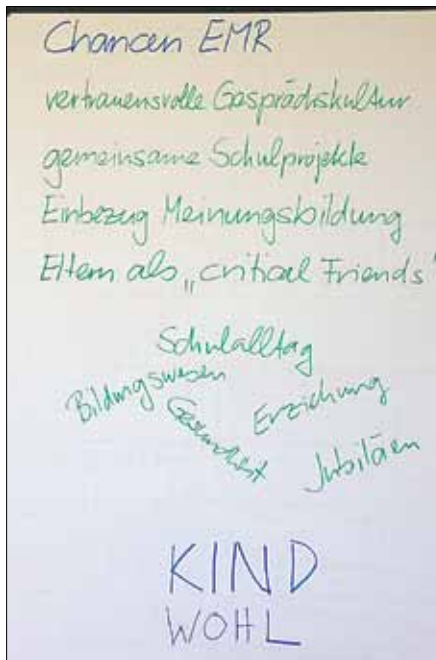 Chancen EMR
vertrauensvolle Gesprächskultur
gemeinsame Schulprojekte
Einbezug Meinungsbildung
Eltern als „critical Friends"
Schulalltag
Bildungswesen
Gesundheit
Erziehung
Jubiläen
KIND
WOHL